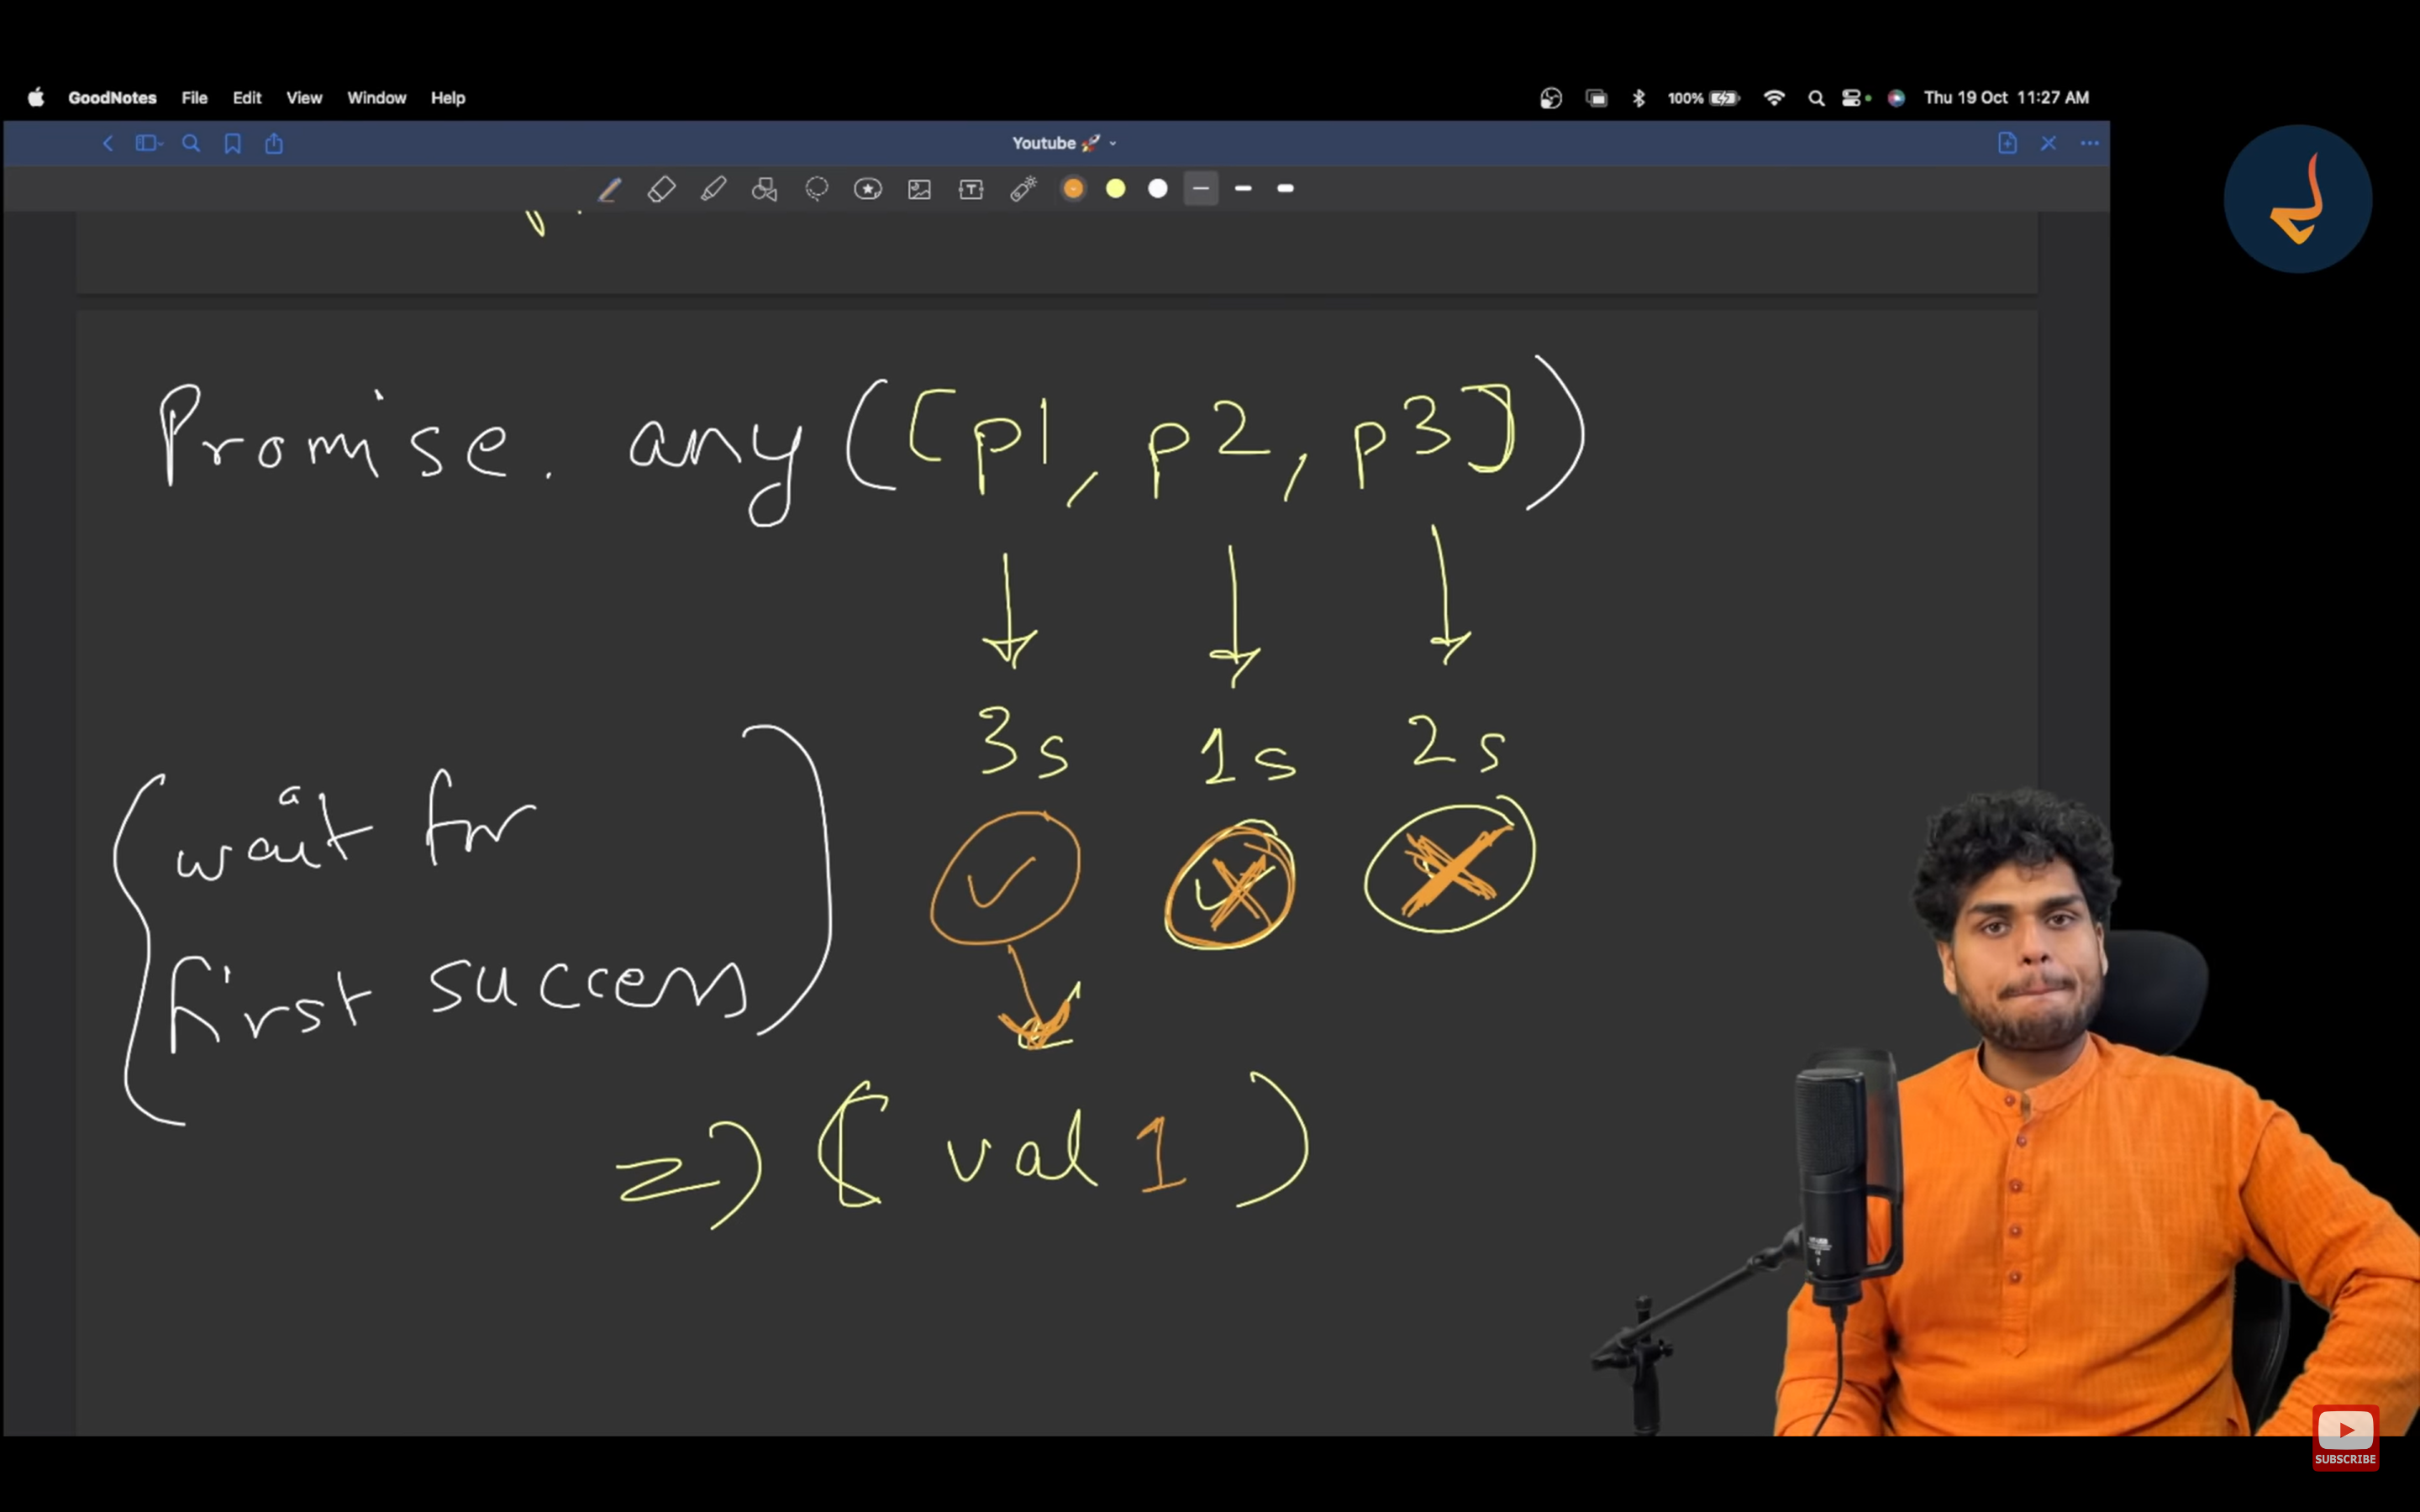 GoodNotes File Edit View Window Help 100% Thu 19 Oct 11:27 AM
Youtube 🚀
Promise. any([p1, p2, p3])
3s 1s 2s
wait for
first success
=> ( val 1 )
SUBSCRIBE